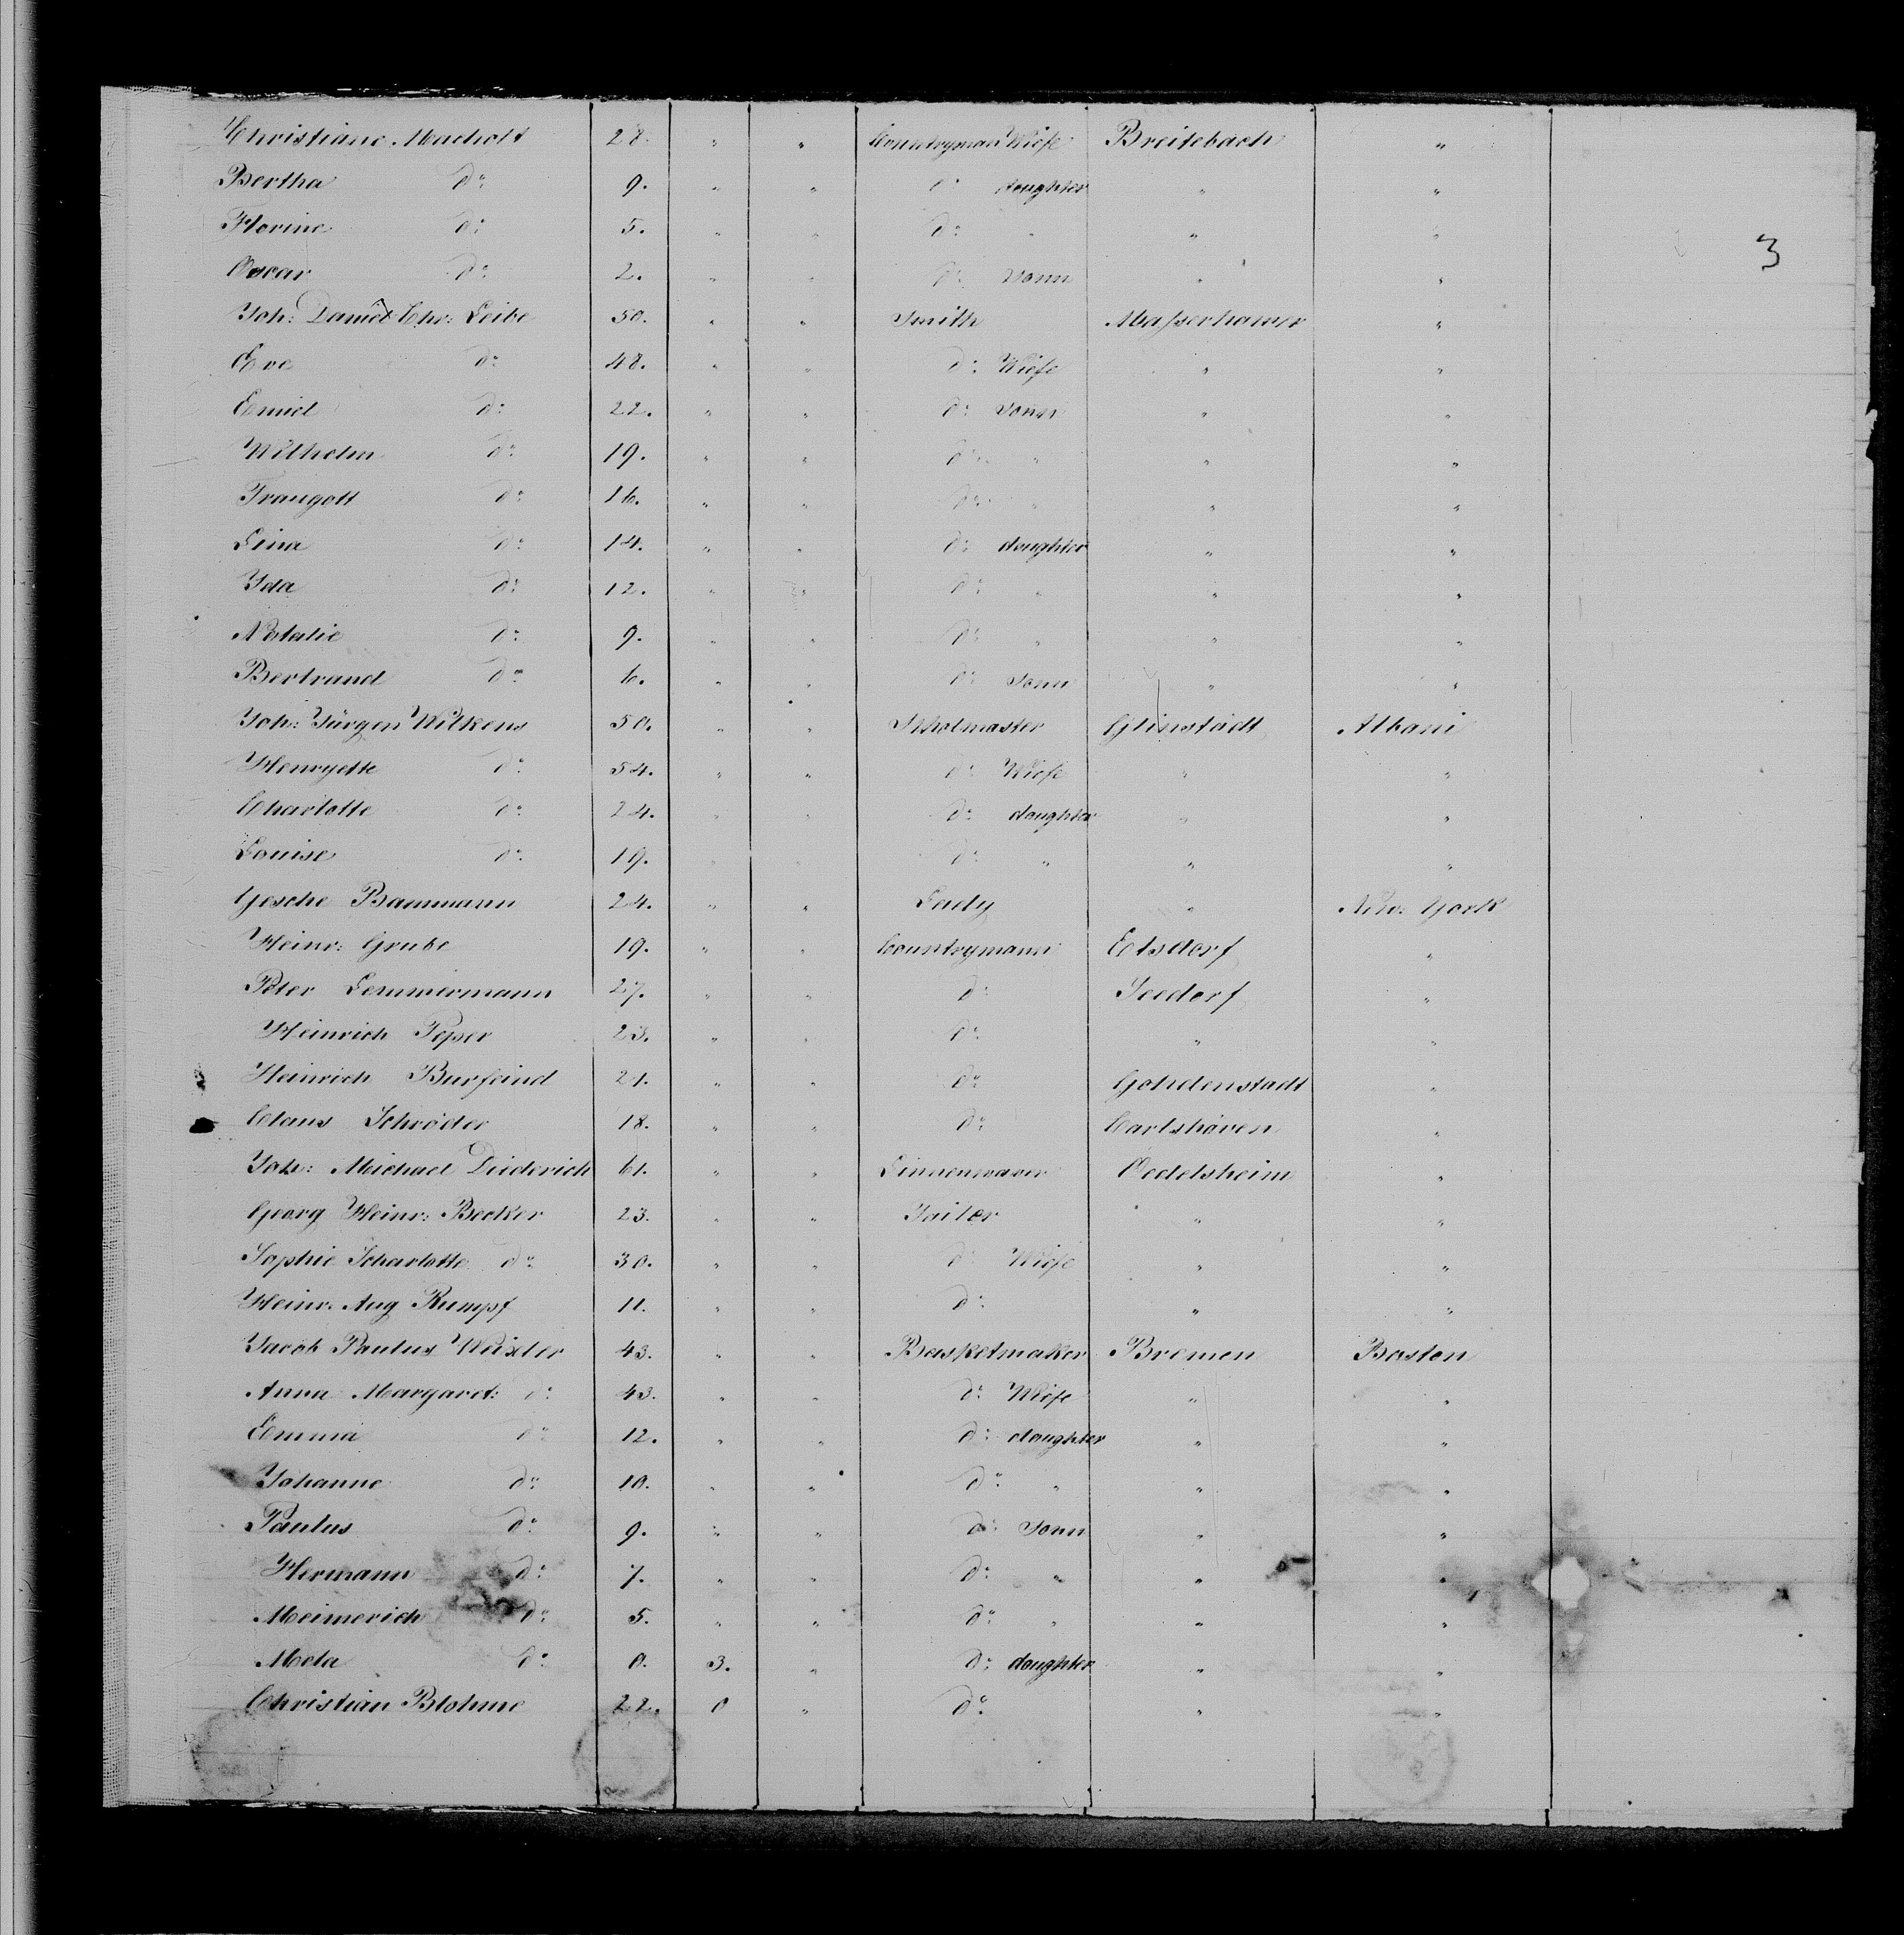 Christiane Macholt 28. " " Countryman Wiefe Breitebach "
Bertha do 9. " " do daughter " "
Florine do 5. " " do " " "
Oscar do 2. " " do Sonn " "
3
Joh: Daniel Chr: Leibe 50. " " Smith Masserhamer "
Eve do 48. " " do Wiefe " "
Emiel do 22. " " do Sonns " "
Wilhelm do 19. " " do " " "
Traugott do 16. " " do " " "
Lina do 14. " " do daughter " "
Ida do 12. " " do " " "
Natalie do 9. " " do " " "
Bertrand do 6. " " do Sonn " "
Joh: Jürgen Wilkens 50. " " Scholmaster Glinstadt Albani
Henryette do 54. " " do Wiefe " "
Charlotte do 24. " " do daughter " "
Louise do 19. " " do " " "
Gesche Bammann 24. " " Lady " New York
Heinr: Grube 19. " " Countrymann Elsdorf "
Peter Lemmermann 27. " " do Seedorf "
Heinrich Peper 23. " " do " "
Heinrich Burfeind 21. " " do Gohdenstadt "
Claus Schröder 18. " " do Carlshaven "
Joh: Michael Diederich 61. " " Linnenwaver Oedelsheim "
Georg Heinr: Becker 23. " " Tailer " "
Sophie Scharlotte do 30. " " do Wiefe " "
Heinr: Aug Rumpf 11. " " do " "
Jacob Paulus Wexler 43. " " Basketmaker Bremen Boston
Anna Margaret: do 43. " " do Wiefe " "
Emma do 12. " " do daughter " "
Johanne do 10. " " do " " "
Paulus do 9. " " do Sonn " "
Hermann do 7. " " do " " "
Meimerich do 5. " " do " " "
Meta do 0. 3. " do daughter " "
Christian Blohme 22. 0 " do " "